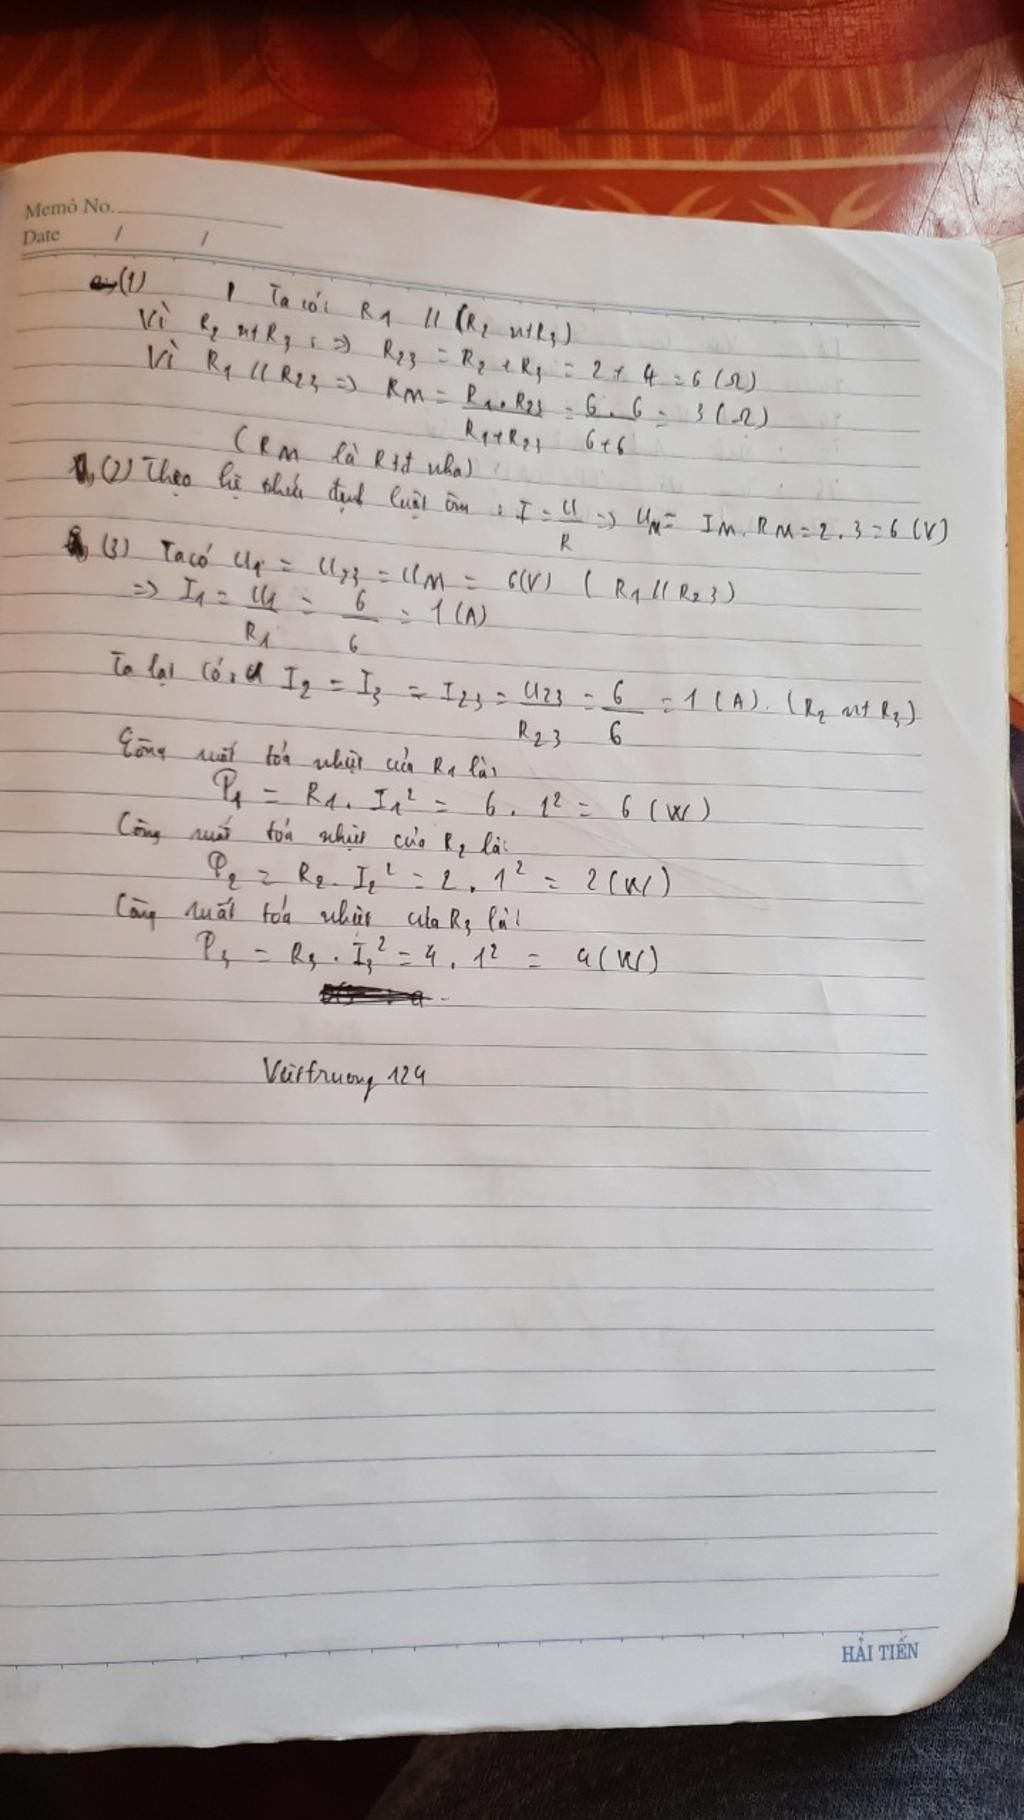 Memo No.
Date / /
(1) Ta có: R1 // (R2 nt R3)
Vì R2 nt R3 : => R23 = R2 + R3 = 2 + 4 = 6 (Ω)
Vì R1 // R23 => RM = R1.R23/R1+R23 = 6.6/6+6 = 3 (Ω)
(RM là R tđ nha)
(2) Theo hệ thức định luật ôm : I = U/R => UM = IM.RM = 2.3 = 6 (V)
(3) Ta có U1 = U23 = UM = 6(V) (R1 // R23)
=> I1 = U1/R1 = 6/6 = 1 (A)
Ta lại có: I2 = I3 = I23 = U23/R23 = 6/6 = 1 (A). (R2 nt R3)
Công suất tỏa nhiệt của R1 là:
P1 = R1.I1² = 6.1² = 6 (W)
Công suất tỏa nhiệt của R2 là:
P2 = R2.I2² = 2.1² = 2 (W)
Công suất tỏa nhiệt của R3 là:
P3 = R3.I3² = 4.1² = 4 (W)
124
HẢI TIẾN